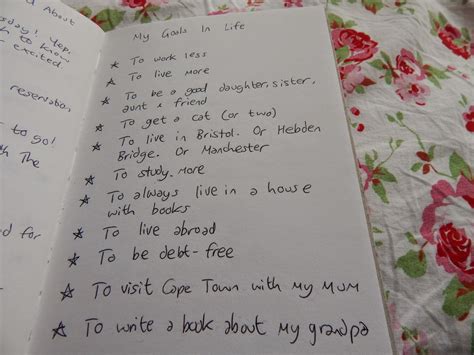 d About
sday! Yep,
h to know
excited
reservation
to go!
ith The
ed for
My Goals In Life
☆ To work less
☆ To live more
☆ To be a good daughter, sister,
aunt & friend
☆ To get a cat (or two)
☆ To live in Bristol. Or Hebden
Bridge. Or Manchester
☆ To study more
☆ To always live in a house
with books
☆ To live abroad
☆ To be debt-free
☆ To visit Cape Town with my mum
☆ To write a book about my grandpa